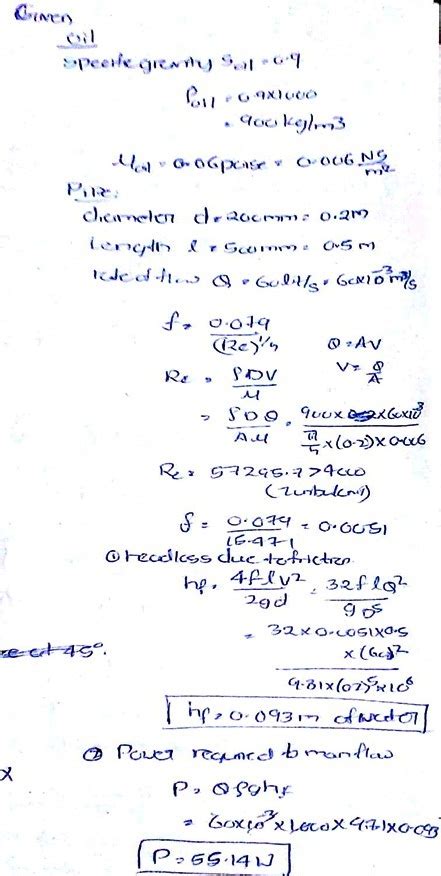 Given
oil
specific gravity Soil = 0.9
ρoil = 0.9x1000
= 900 kg/m3
μoil = 0.06 poise = 0.006 NS/m2
Pipe:
diameter d = 200mm = 0.2m
length l = 500mm = 0.5m
rate of flow Q = 60 lit/s = 60x10-3 m3/s
f = 0.079/(Re)1/4
Q = AV
V = Q/A
Re = ρDV/μ
= ρDQ/Aμ = 900x0.2x60x10-3 / π/4x(0.2)x0.006
Re = 57295.7 > 4000
(Turbulent)
f = 0.079/15.471 = 0.0051
① head loss due to friction
hf = 4flv2/2gd = 32flQ2/gD5
= 32x0.0051x0.5
x(60)2
9.81x(0.2)5x106
re at 45°.
hf = 0.093m of water
② Power required to man flow
x
P = Qρghf
= 60x10-3x1000x9.81x0.093
P = 55.14W